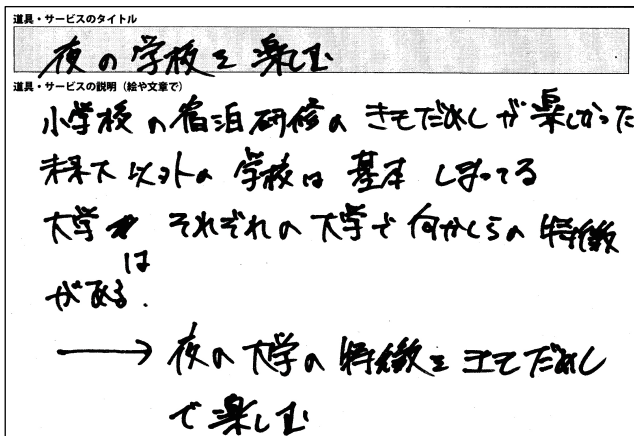 道具・サービスのタイトル
夜の学校を楽しむ
道具・サービスの説明（絵や文章で）
小学校の宿泊研修のきもだめしが楽しかった
未来大以外の学校は基本しまってる
大学は それぞれの大学で何かしらの特徴
がある.
→ 夜の大学の特徴をきもだめし
で楽しむ